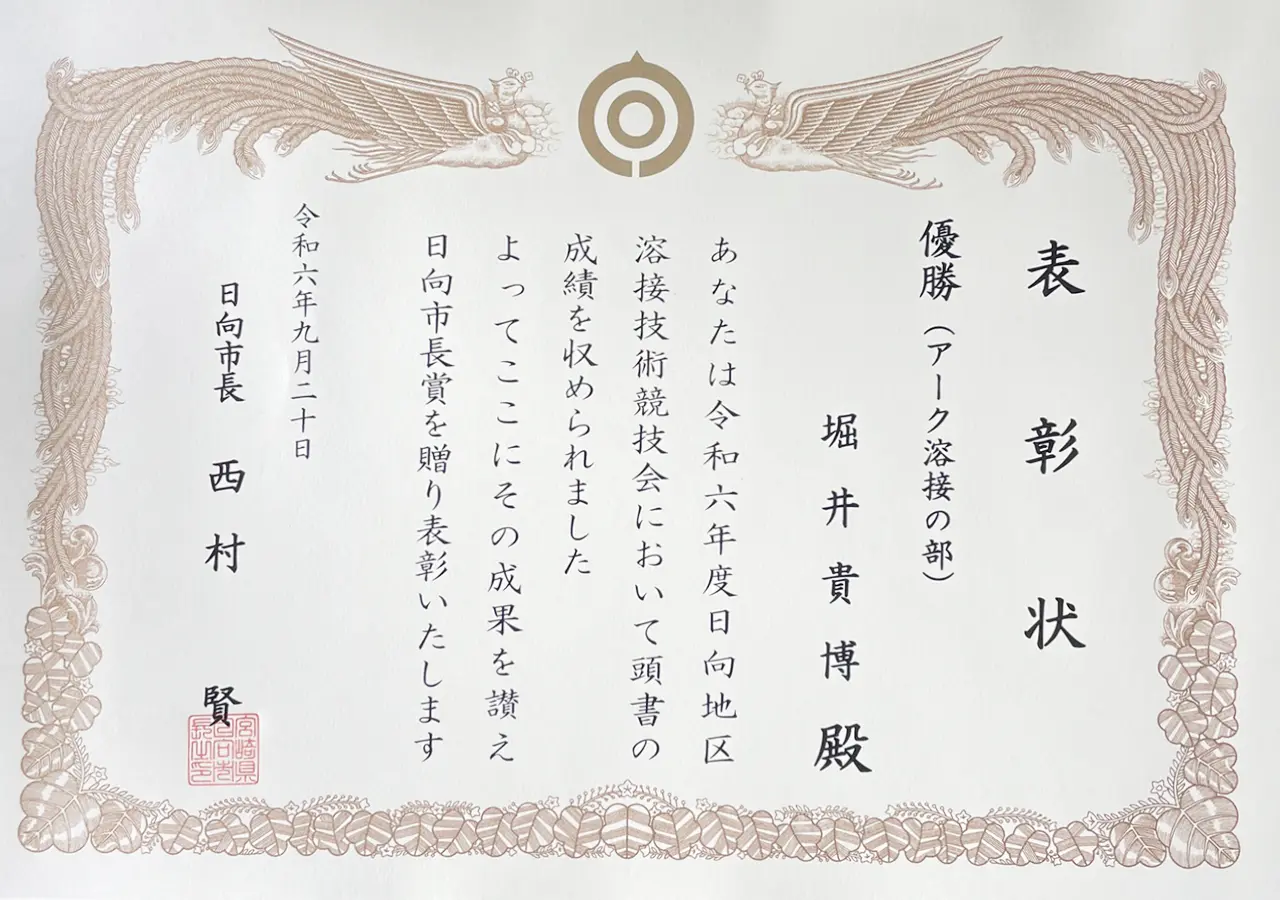 表彰状
優勝（アーク溶接の部）
堀井貴博殿
あなたは令和六年度日向地区
溶接技術競技会において頭書の
成績を収められました
よってここにその成果を讃え
日向市長賞を贈り表彰いたします
令和六年九月二十日
日向市長 西村 賢
宮崎県
日向市
長之印